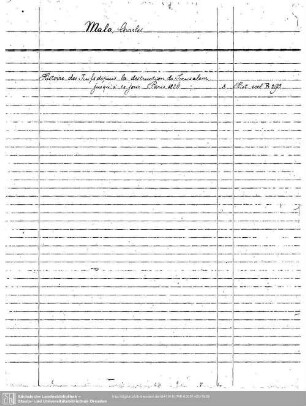 Malo, Charles
Histoire des Juifs depuis la destruction de Jérusalem
jusqu'à ce jour Paris 1826 8 Hist. eccl. B
Sächsische Landesbibliothek -
Staats- und Universitätsbibliothek Dresden